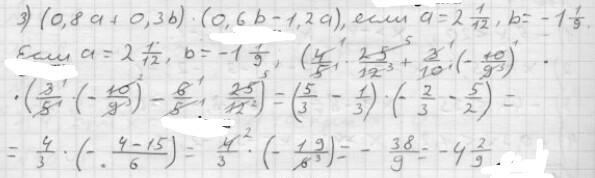 3) (0,8a + 0,3b) · (0,6b - 1,2a), если a = 2 1/12, b = -1 1/9.
Если a = 2 1/12, b = -1 1/9, (4/5 · 25/12 + 3/10 · (-10/9)) ·
· (3/5 · (-10/9) - 6/5 · 25/12) = (5/3 - 1/3) · (-2/3 - 5/2) =
= 4/3 · (- 4-15/6) = 4/3 · (-19/6) = - 38/9 = -4 2/9.